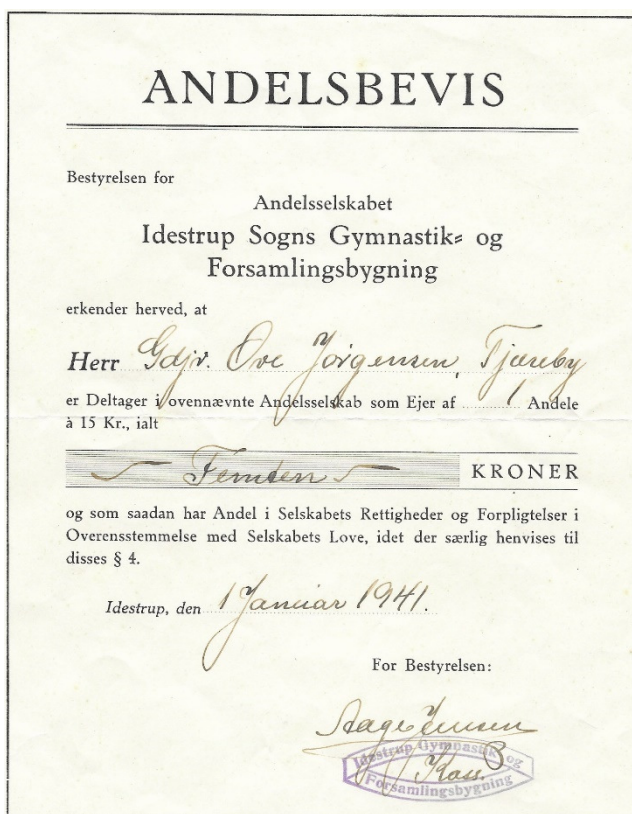 ANDELSBEVIS
Bestyrelsen for
Andelsselskabet
Idestrup Sogns Gymnastik= og
Forsamlingsbygning
erkender herved, at
Herr Gdjr. Ove Jørgensen, Tjæreby
er Deltager i ovennævnte Andelsselskab som Ejer af 1 Andele
à 15 Kr., ialt
Femten KRONER
og som saadan har Andel i Selskabets Rettigheder og Forpligtelser i
Overensstemmelse med Selskabets Love, idet der særlig henvises til
disses § 4.
Idestrup, den 1 Januar 1941.
For Bestyrelsen:
Aage Jensen
Idestrup Gymnastik og
Kass.
Forsamlingsbygning